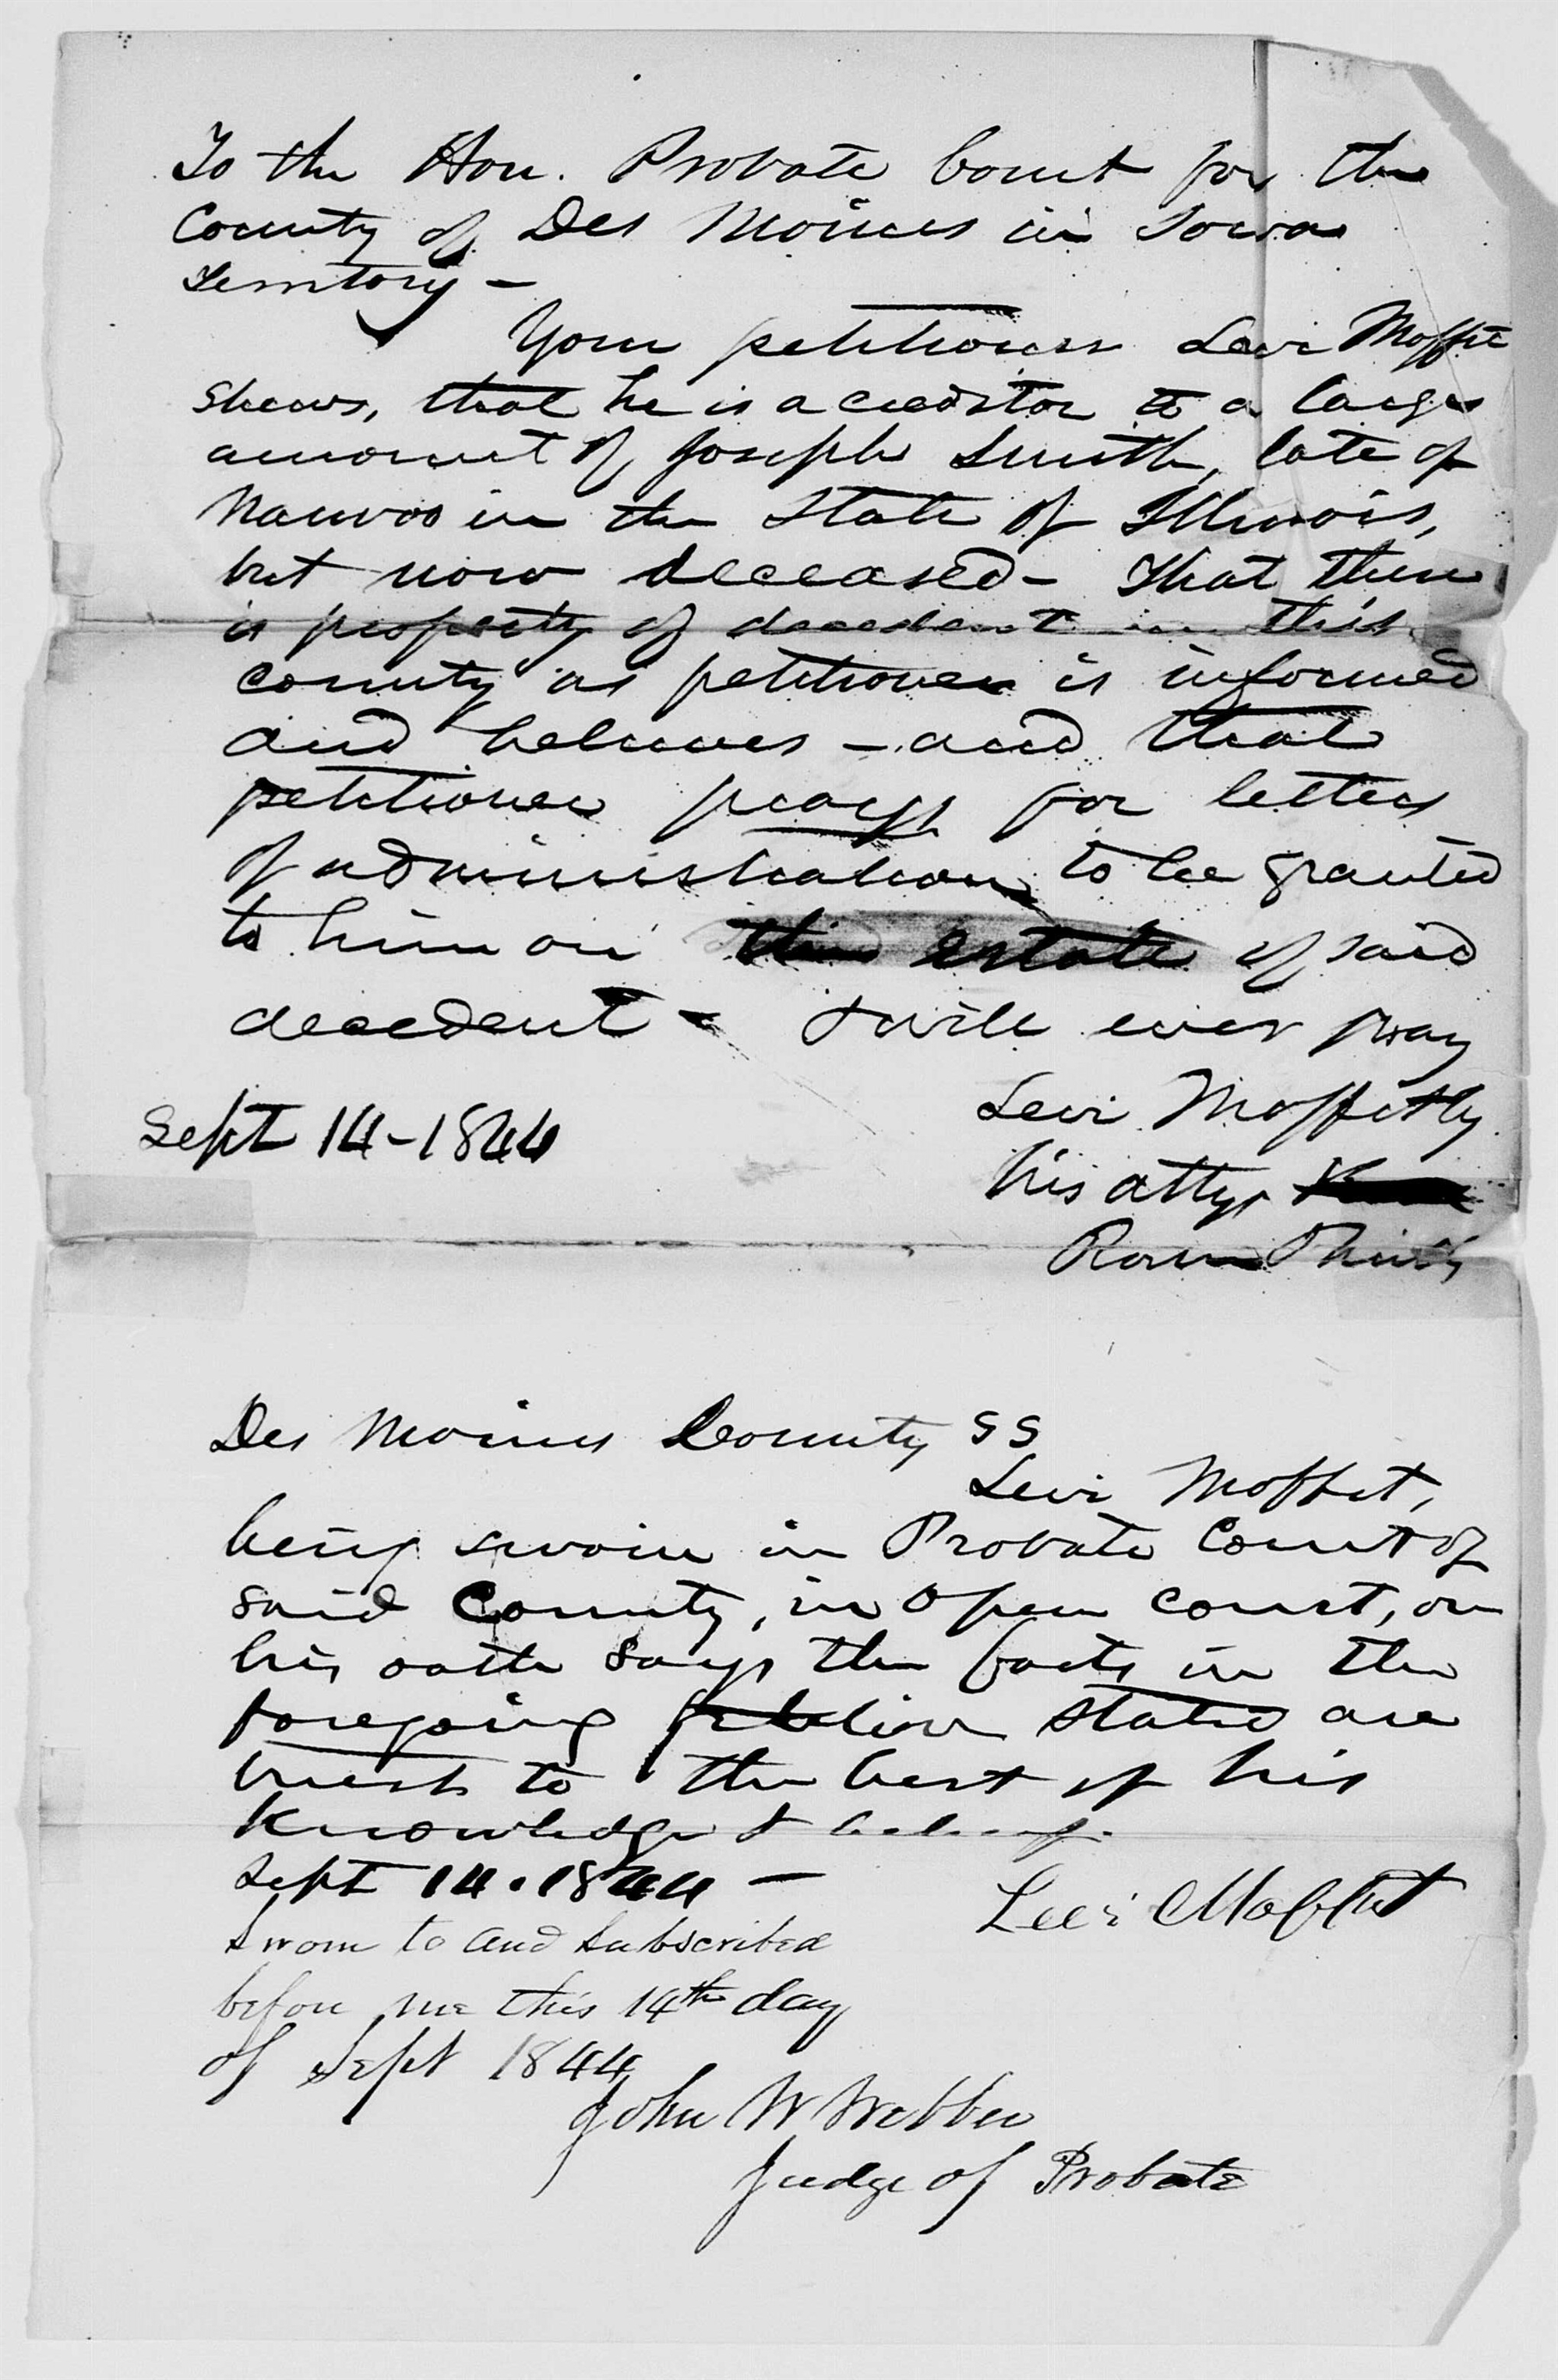 To the Hon. Probate Court for the
County of Des Moines in Iowa
Territory –
Your petitioner Levi Moffit
shews, that he is a creditor to a large
amount of Joseph Smith, late of
Nauvoo in the State of Illinois,
but now deceased – That there
is property of decedent in this
county as petitioner is informed
and believes – and that
petitioner prays for letters
of administration to be granted
to him on the estate of said
decedent – & will ever pray
Sept 14 – 1844
Levi Moffit by
his attys
Des Moines County SS
Levi Moffet,
being sworn in Probate Court of
said County, in open court, on
his oath says the facts in the
foregoing petition stated are
true to the best of his
knowledge & belief.
Sept 14. 1844 –
Levi Moffit
Sworn to and Subscribed
before me this 14th day
of Sept 1844
John W Webber
Judge of Probate